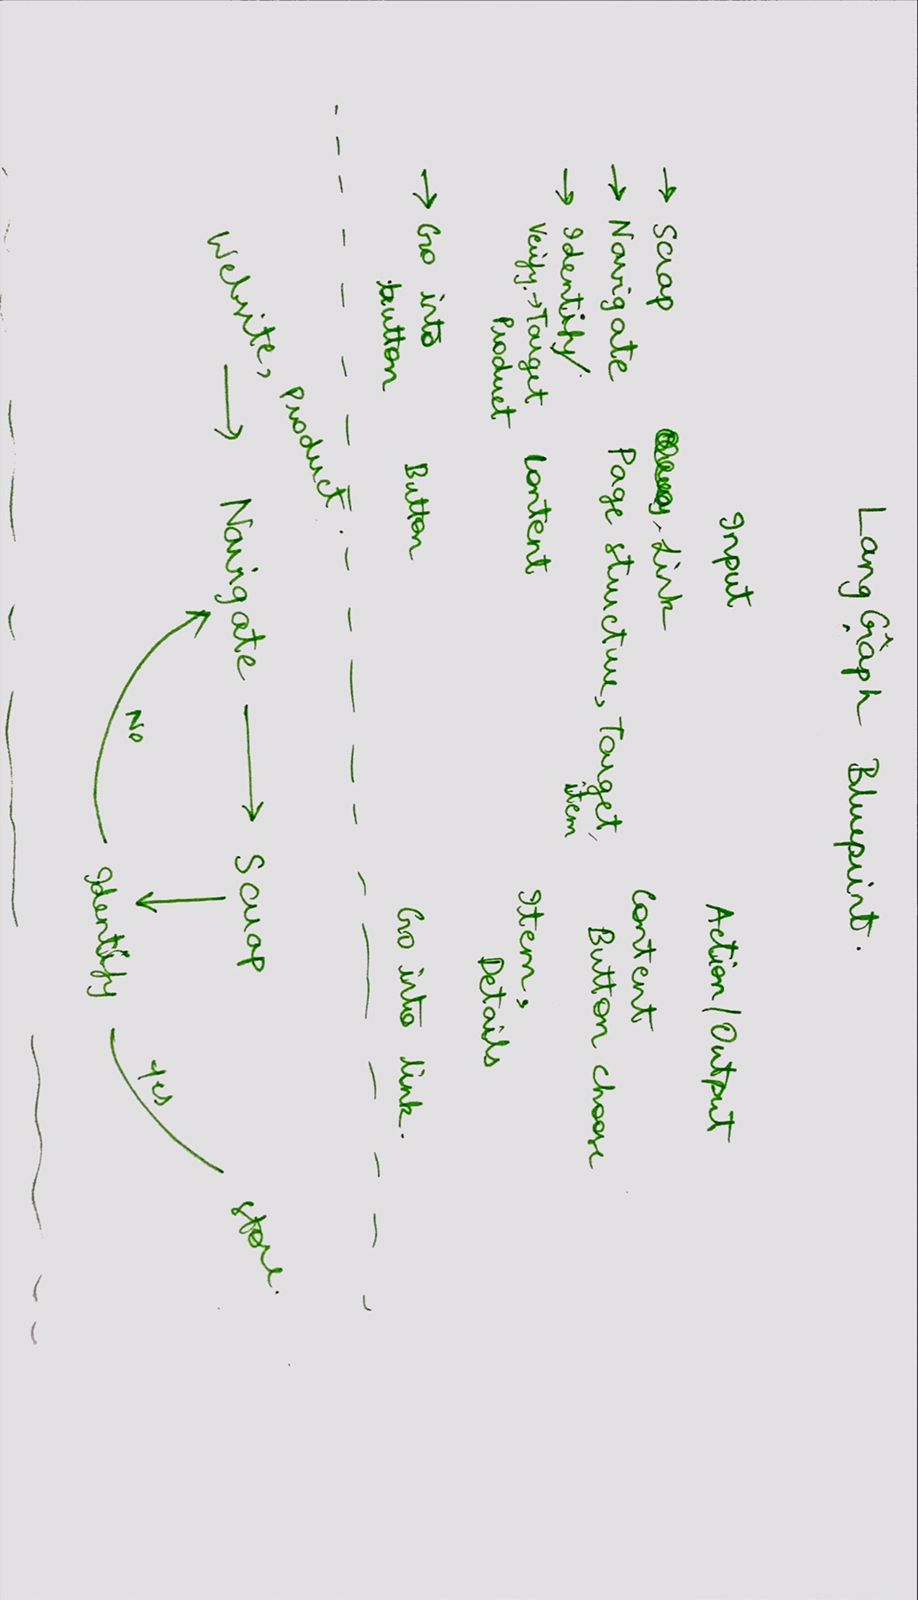 LangGraph Blueprint.
Input Action/Output
→ Scrap Link Content
→ Navigate Page structure, Target item Button choose
→ Identify/
Verify. → Target Product Content Item, Details
→ Go into button Button Go into link.
Website, Product.
→ Navigate → Scrap
No Yes Store.
Identify